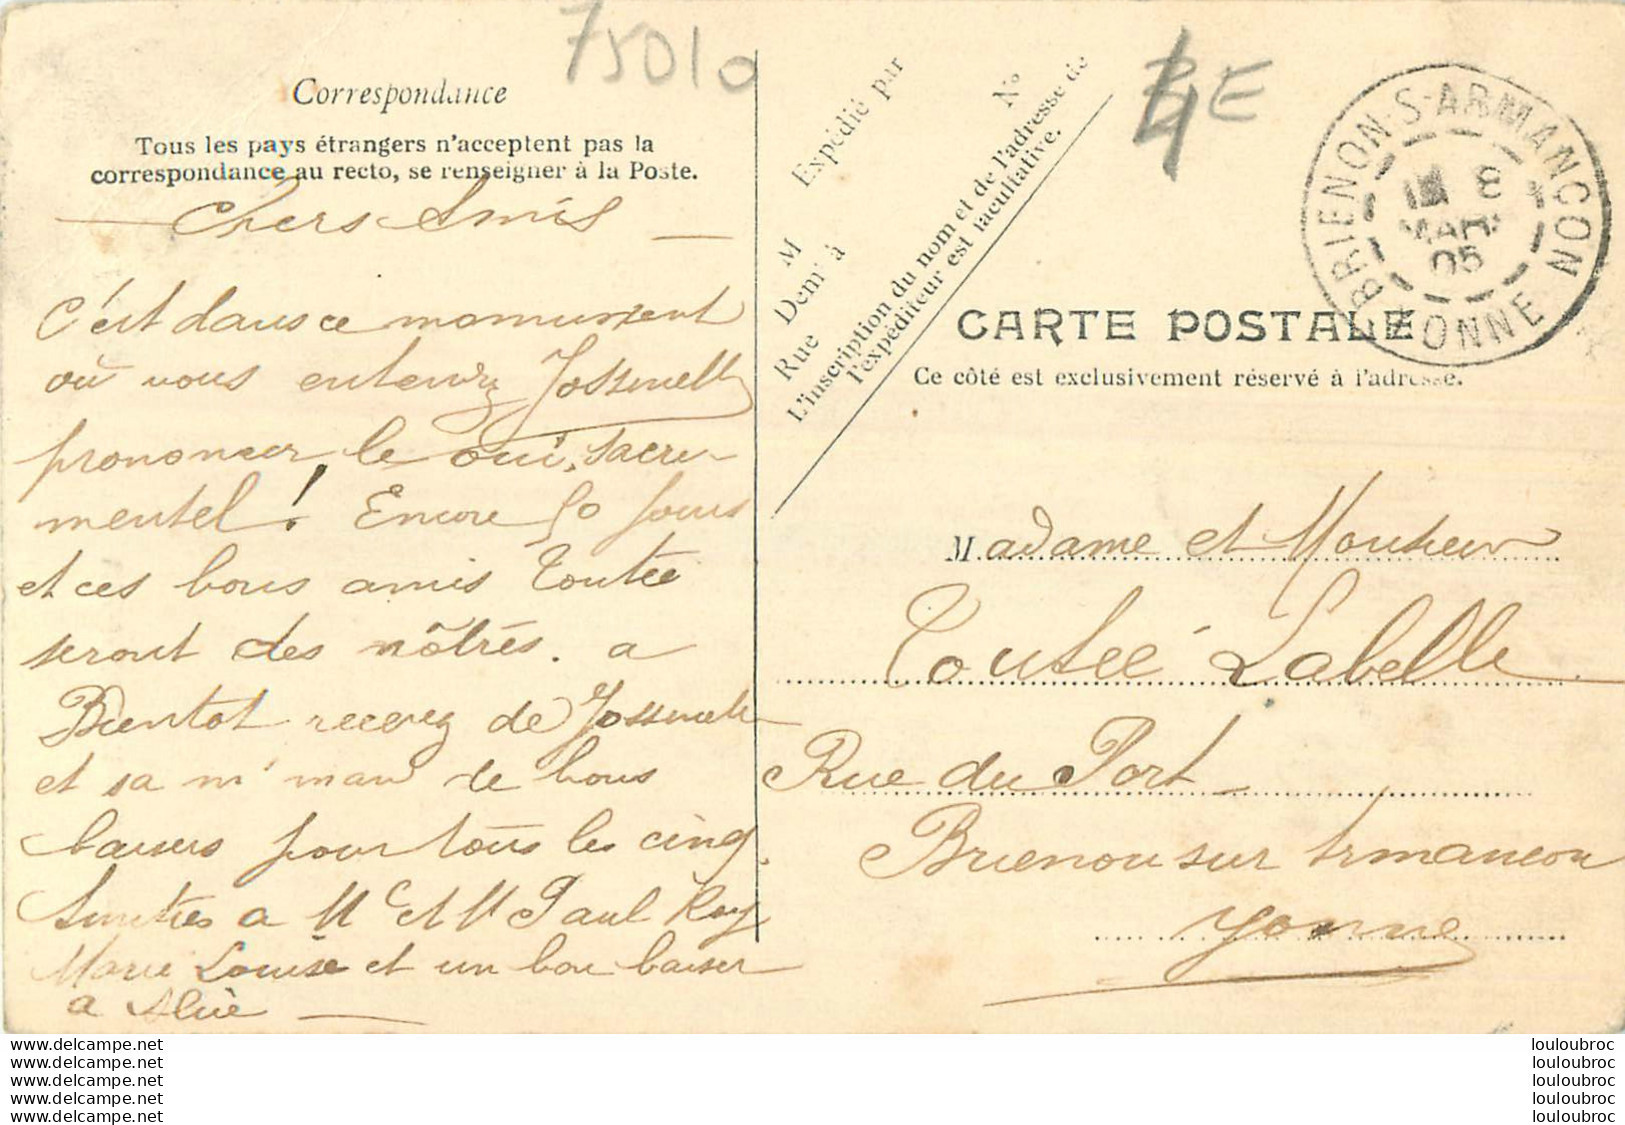 75010
Correspondance
Tous les pays étrangers n'acceptent pas la
correspondance au recto, se renseigner à la Poste.
Chers Amis
C'est dans ce monument
où vous entendrez
prononcer le oui, sacre-
mentel! Encore 50 jours
et ces bons amis Toutée
seront des nôtrés. a
Bientot recevez de
et sa m'man de bons
baisers pour tous les cinq.
Amitiés a Me et M Paul Roy
Marie Louise et un bon baiser
a Alice
Expédié par
M
Demt à
Rue
No
L'inscription du nom et de l'adresse de
l'expéditeur est facultative.
E
BRIENON-S-ARMANÇON
8
MARS
05
YONNE
CARTE POSTALE
Ce côté est exclusivement réservé à l'adresse.
Madame et Monsieur
Toutée Labelle
Rue du Port
Brienon sur Armancon
Yonne
www.delcampe.net
www.delcampe.net
www.delcampe.net
www.delcampe.net
www.delcampe.net
louloubroc
louloubroc
louloubroc
louloubroc
louloubroc